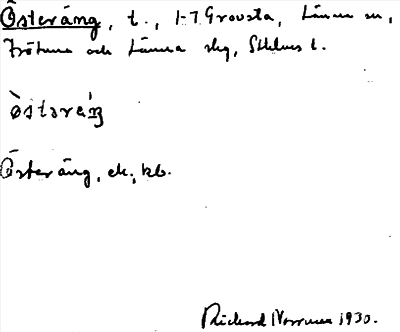 Österäng, t., 1-7 Grovsta, Länna sn,
Frötuna och Länna skg, Sthlms l.
òstəréŋ
Österäng, ek., kb.
Rickard 1930.